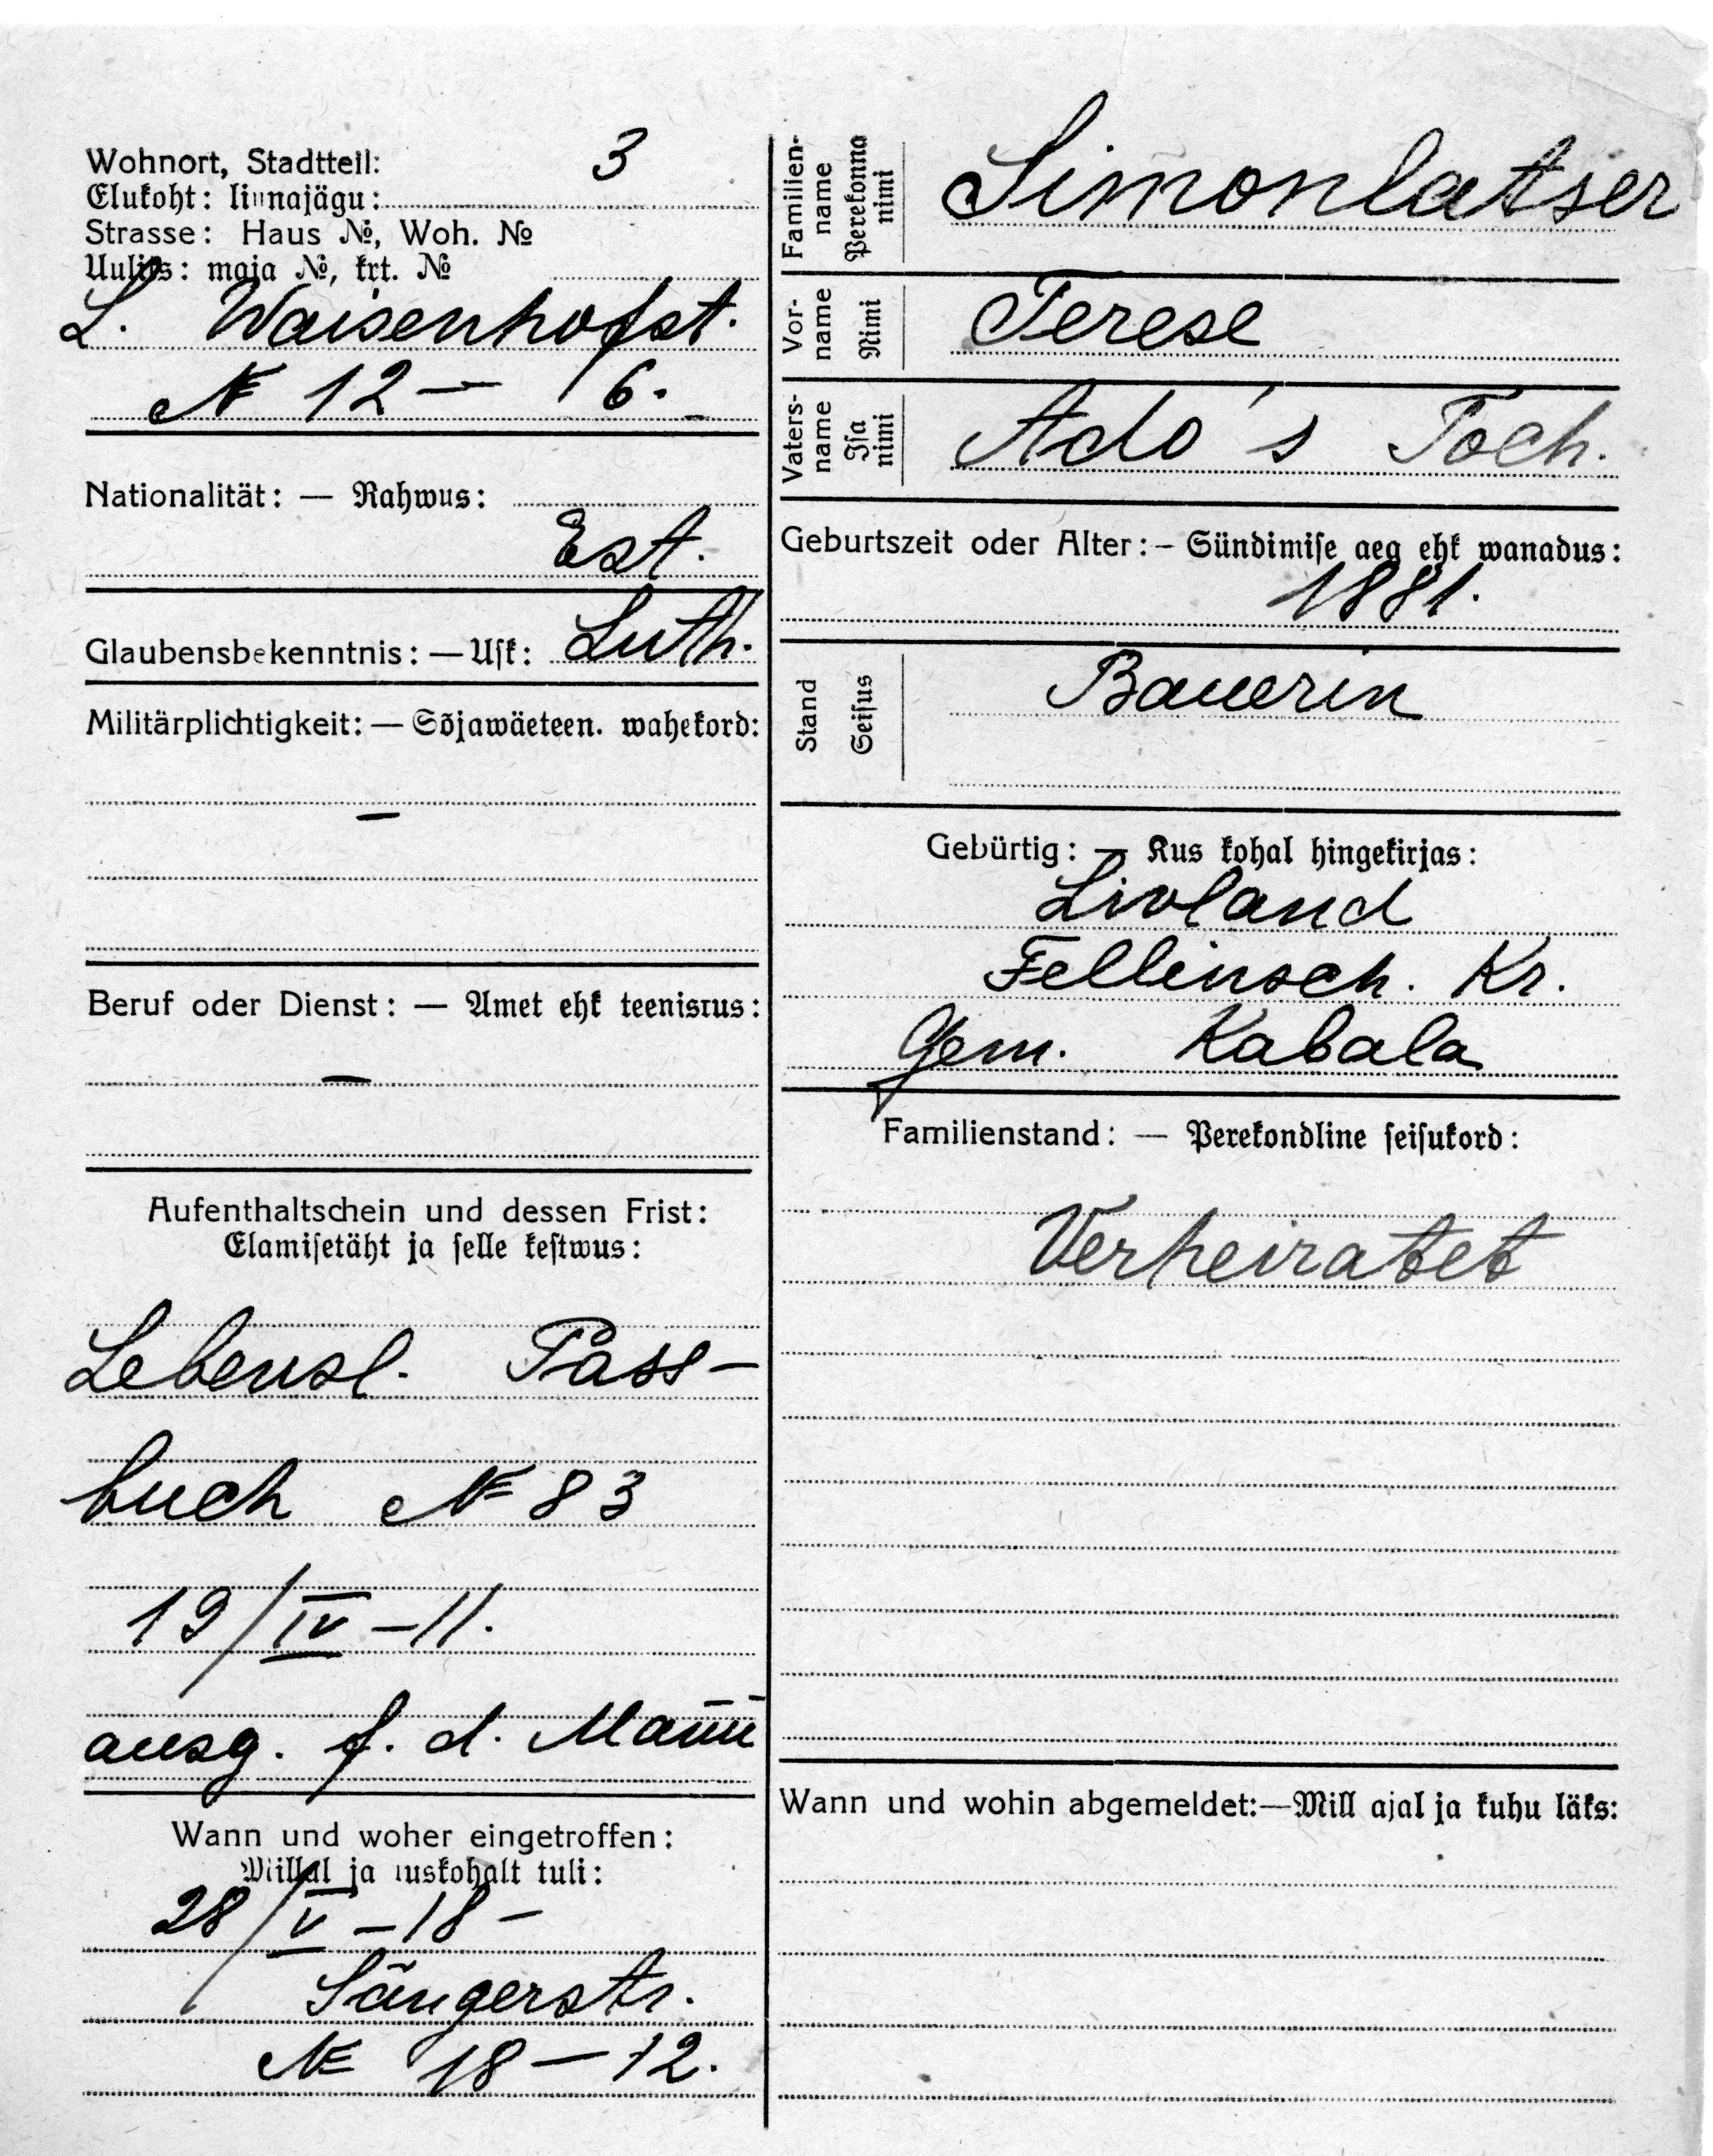 Wohnort, Stadtteil: 3
Elukoht: linnajägu:
Strasse: Haus №, Woh. №
Uulits: maja №, krt. №
L. Waisenhofst.
№ 12 — 6.
Nationalität: — Rahwus:
Est.
Glaubensbekenntnis: — Usk: Luth.
Militärplichtigkeit: — Sõjawäeteen. wahekord:
—
Beruf oder Dienst: — Amet ehk teenistus:
—
Aufenthaltschein und dessen Frist:
Elamisetäht ja selle kestwus:
Lebensl. Pass-
buch № 83
19/IV –11.
ausg. f. d. Mann
Wann und woher eingetroffen:
Millal ja kuskohalt tuli:
28/V –18 –
Sängerstr.
№ 18 – 12.
Familien-
name
Perekonna
nimi
Simonlatser
Vor-
name
Nimi
Terese
Vaters-
name
Isa
nimi
Ado's Toch.
Geburtszeit oder Alter: – Sündimise aeg ehk wanadus:
1881.
Stand
Seisus
Bauerin
Gebürtig: — Kus kohal hingekirjas:
Livland
Fellinsch. Kr.
Gem. Kabala
Familienstand: — Perekondline seisukord:
Verheiratet
Wann und wohin abgemeldet:—Mill ajal ja kuhu läks: